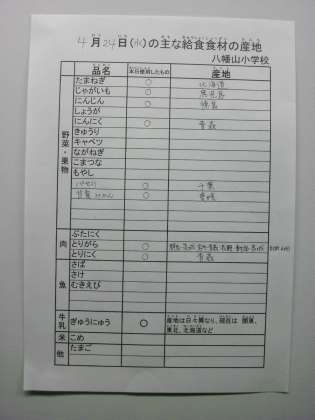 4月24日(水)の主な給食食材の産地
八幡山小学校
品名 本日使用したもの 産地
野菜・果物
たまねぎ ○ 北海道
じゃがいも ○ 鹿児島
にんじん ○ 徳島
しょうが
にんにく ○ 青森
きゅうり
キャベツ
ながねぎ
こまつな
もやし
パセリ ○ 千葉
甘夏みかん ○ 愛媛
肉
ぶたにく
とりがら ○
とりにく ○ 青森
魚
さば
さけ
むきえび
牛乳
ぎゅうにゅう ○ 産地は日々異なり、現在は 関東、
東北、北海道など
米 こめ
他 たまご